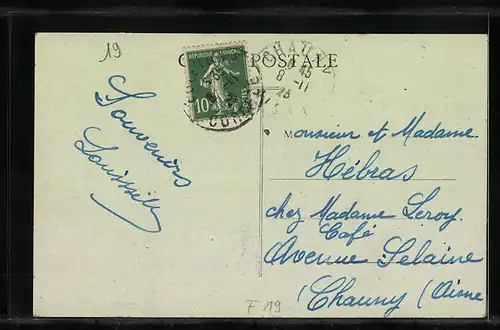 19
CARTE POSTALE
REPUBLIQUE FRANÇAISE
10
8 -11
23
Souvenirs
Monsieur et Madame
Hébras
chez Madame Leroy
Café
Avenue Selaine
Chauny (Aisne
F 19